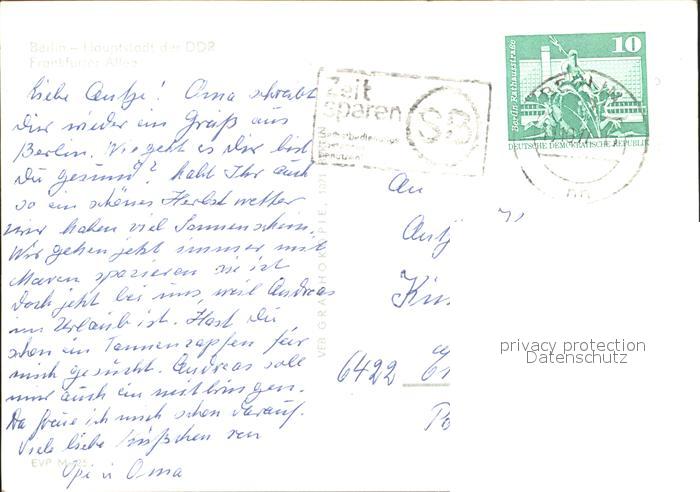 Berlin – Hauptstadt der DDR
Frankfurter Allee
Liebe Antje! Oma schreibt
Dir wieder ein Gruß aus
Berlin. Wie geht es Dir bist
Du gesund? habt Ihr auch
so ein schönes Herbstwetter
wir haben viel Sonnenschein.
Wir gehen jetzt immer mit
Maren spazieren sie ist
doch jetzt bei uns, weil Andreas
im Urlaub ist. Hast Du
schon ein Tannenzapfen für
mich gesucht. Andreas soll
mir auch ein mitbringen.
Da freue ich mich schon darauf.
Viele liebe Küßchen von
Opi u Oma
EVP M
VEB GRAPHOKOPIE
Zeit
sparen
SB
10
Berlin Rathausstraße
DEUTSCHE DEMOKRATISCHE REPUBLIK
An
Antj
Kin
6422
privacy protection
Datenschutz